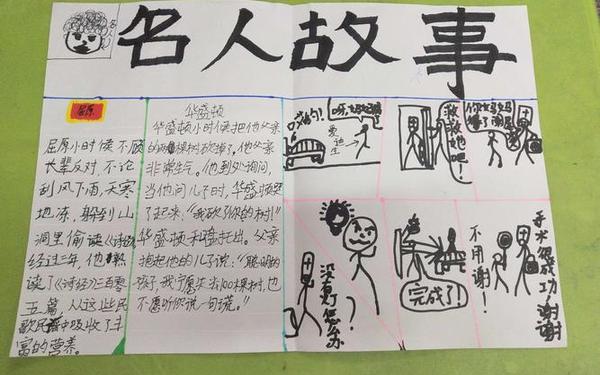 名人故事
屈原
屈原小时候不顾
长辈反对,不论
刮风下雨,天寒
地冻,躲到山
洞里偷读《诗经》
经过三年,他熟
读了《诗经》三百零
五篇,从这些民
歌民谣中吸收了丰
富的营养。
华盛顿
华盛顿小时候把他父亲
的两棵树砍掉了。他父亲
非常生气。他到处询问,
当他问儿子时,华盛顿哭
了起来,“我砍了你的树!”
华盛顿和盘托出。父亲
抱起他的儿子说:“聪明的
孩子,我宁愿失去100棵树,也
不愿听你说一句谎。”
哎呀,
爱迪生
救救她吧!
没有灯怎么办?
完成了!
不用谢!
手术很成功!谢谢